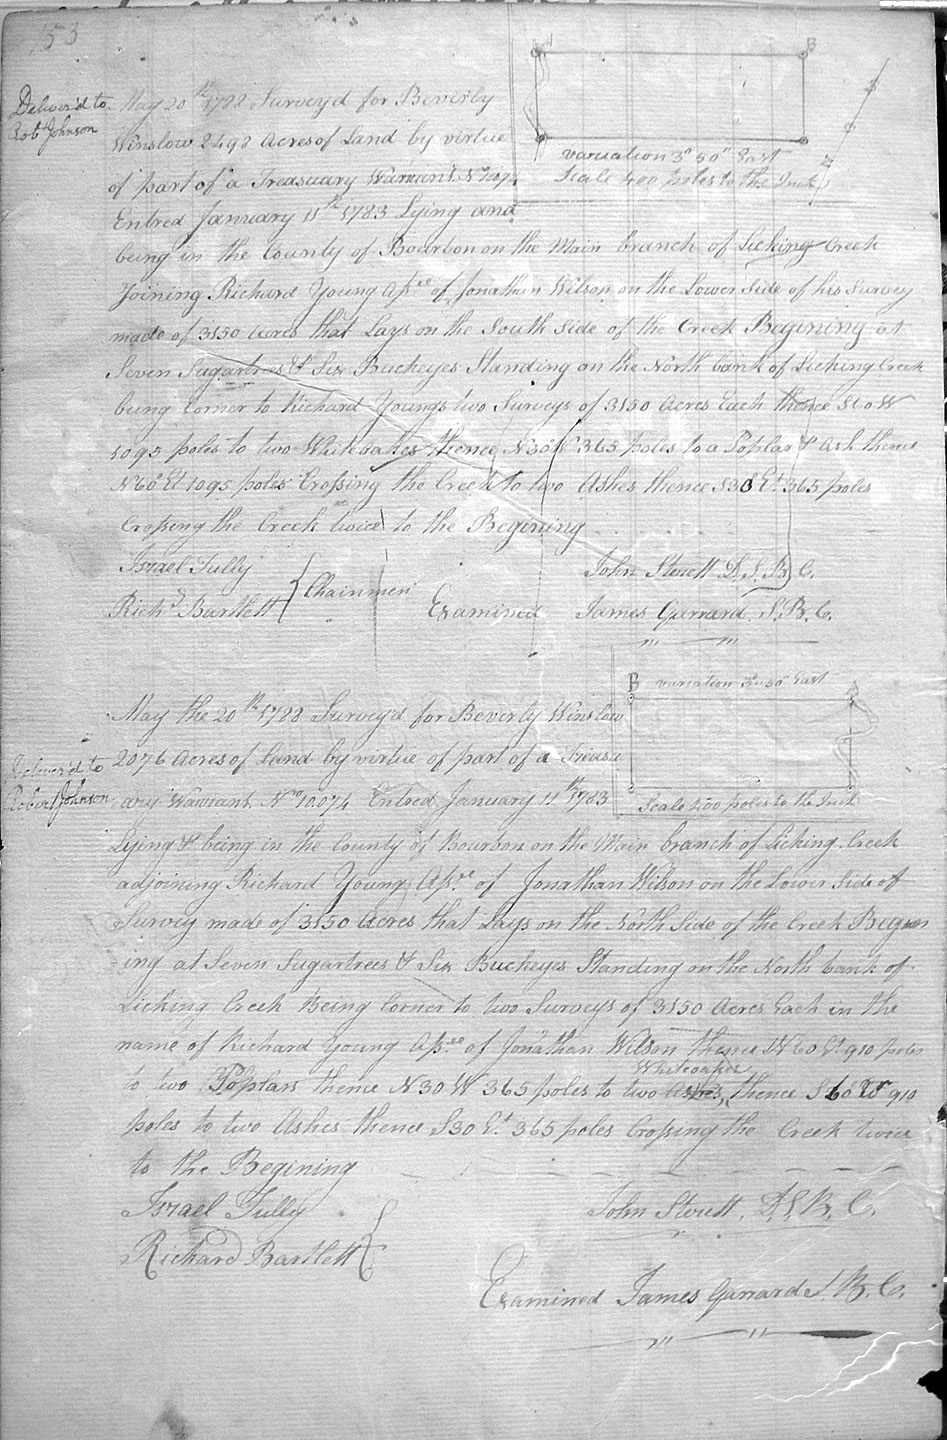 153
A B
Deliver'd to
Rob Johnson
variation 3° 50" East
Scale 400 poles to the Inch
May 20th 1788 Survey'd for Beverly
Winslow 2498 Acres of Land by virtue
of part of a Treasuary Warrant No 10074
Entred January 11th 1783 Lying and
being in the County of Bourbon on the Main branch of Licking Creek
Joining Richard Young Assee of Jonathan Wilson on the Lower Side of his Survey
made of 3150 Acres that Lays on the South Side of the Creek Begining at
Seven Sugartrees & Six Buckeyes Standing on the North bank of Licking Creek
being Corner to Richard Youngs two Surveys of 3150 Acres Each thence S60W
1095 poles to two Whiteoakes thence N30W 365 poles to a Poplar & Ash thence
N60 Et 1095 poles Crossing the Creek to two Ashes thence S30 Et 365 poles
Crossing the Creek twice to the Begining
Israel Tully
Richd Bartlett } Chainmen
John Sterett D. S. B. C.
Examined James Garrard. S. B. C.
B variation 3° 50" East
Scale 400 poles to the Inch
Deliver'd to
Robert Johnson
May the 20th 1788 Survey'd for Beverly Winslow
2076 Acres of Land by virtue of part of a Treasu
ary Warrant, No 10074 Entred January 11th 1783
Lying & being in the County of Bourbon on the Main branch of Licking Creek
adjoining Richard Young Assee of Jonathan Wilson on the Lower Side of
Survey made of 3150 Acres that Lays on the North Side of the Creek Begin
ing at Seven Sugartrees & Six Buckeyes Standing on the North bank of
Licking Creek Being Corner to two Surveys of 3150 Acres Each in the
name of Richard Young Assee of Jonathan Wilson thence N60 Et 910 poles
to two Poplars thence N30 W 365 poles to two Whiteoakes thence S60 W 910
poles to two Ashes thence S30 Et 365 poles Crossing the Creek twice
to the Begining
Israel Tully
Richard Bartlett }
John Sterett, D. S. B. C.
Examined James Garrard S. B. C.